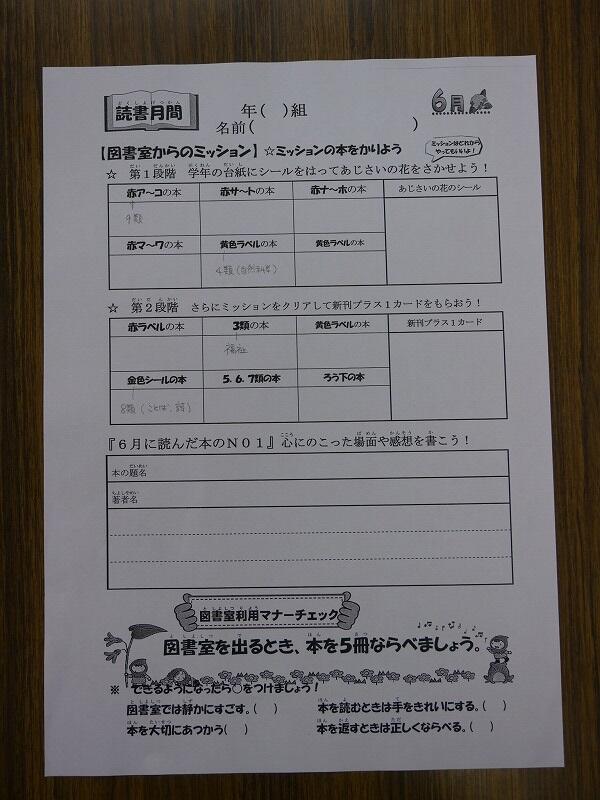 読書月間
年( )組
6月
名前( )
【図書室からのミッション】 ☆ミッションの本をかりよう
ミッションはどれから
やってもいいよ!
☆ 第1段階 学年の台紙にシールをはってあじさいの花をさかせよう!
赤ア~コの本 赤サ~トの本 赤ナ~ホの本 あじさいの花のシール
9類
赤マ~ワの本 黄色ラベルの本 黄色ラベルの本
4類(自然科学)
☆ 第2段階 さらにミッションをクリアして新刊プラス1カードをもらおう!
赤ラベルの本 3類の本 黄色ラベルの本 新刊プラス1カード
福祉
金色シールの本 5.6.7類の本 ろう下の本
8類(ことば、詩)
『6月に読んだ本のNO1』心にのこった場面や感想を書こう!
本の題名
著者名
図書室利用マナーチェック
図書室を出るとき、本を5冊ならべましょう。
※ できるようになったら○をつけましょう!
図書室では静かにすごす。( ) 本を読むときは手をきれいにする。( )
本を大切にあつかう( ) 本を返すときは正しくならべる。( )